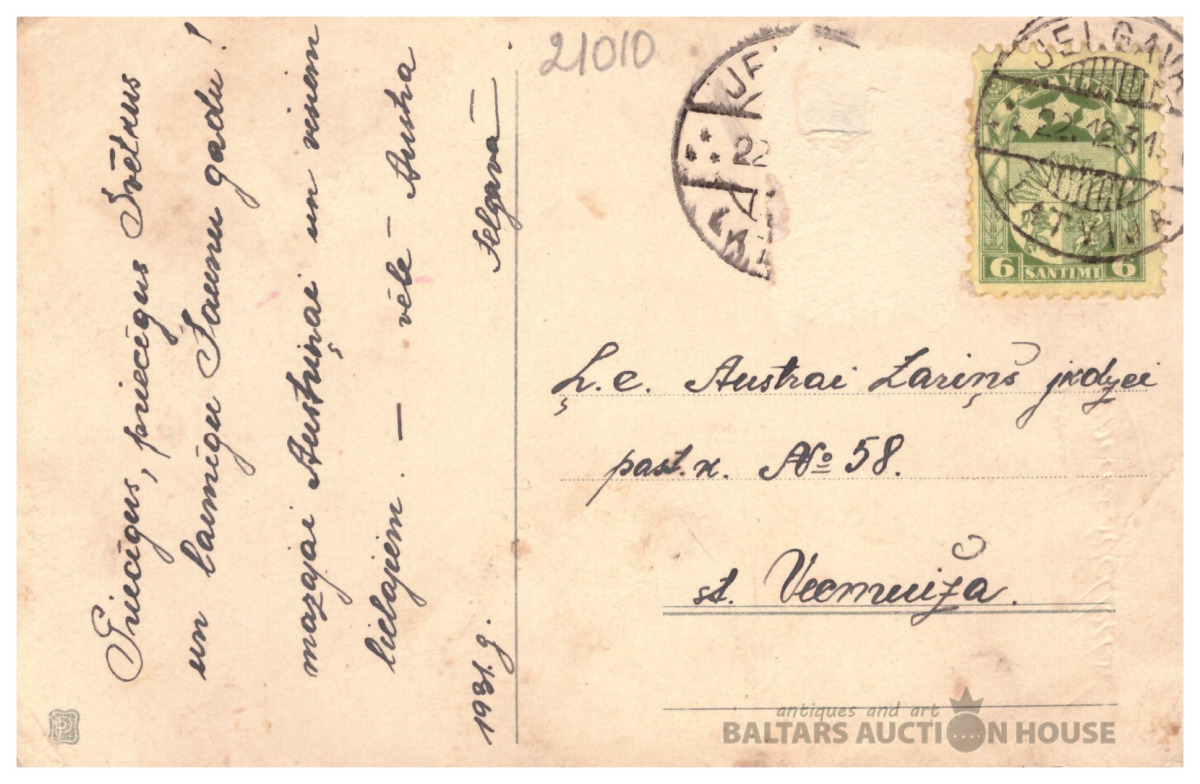 Priecīgus, priecīgus Svētkus
un laimīgu Jaunu gadu!
mazajai Austriņai un visiem
lielajiem. — vēlē — Austra
Jelgavā
1931. g.
21010
JE
22
LA
JELGAVA
22.12.31.
LATVIJA
LATVIJA
6 SANTIMI 6
Ļ. c. Austrai Lariņš jkdzei
past. n. № 58.
st. Vecmuiža.
antiques and art
BALTARS AUCTION HOUSE